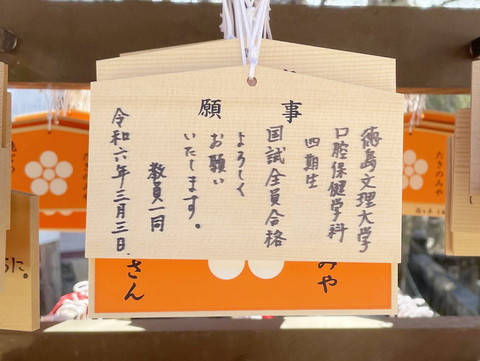 願事
徳島文理大学
口腔保健学科
四期生
国試全員合格
よろしく
お願い
いたします。
教員一同
令和六年三月三日
みや
さん
たきのみや
に。